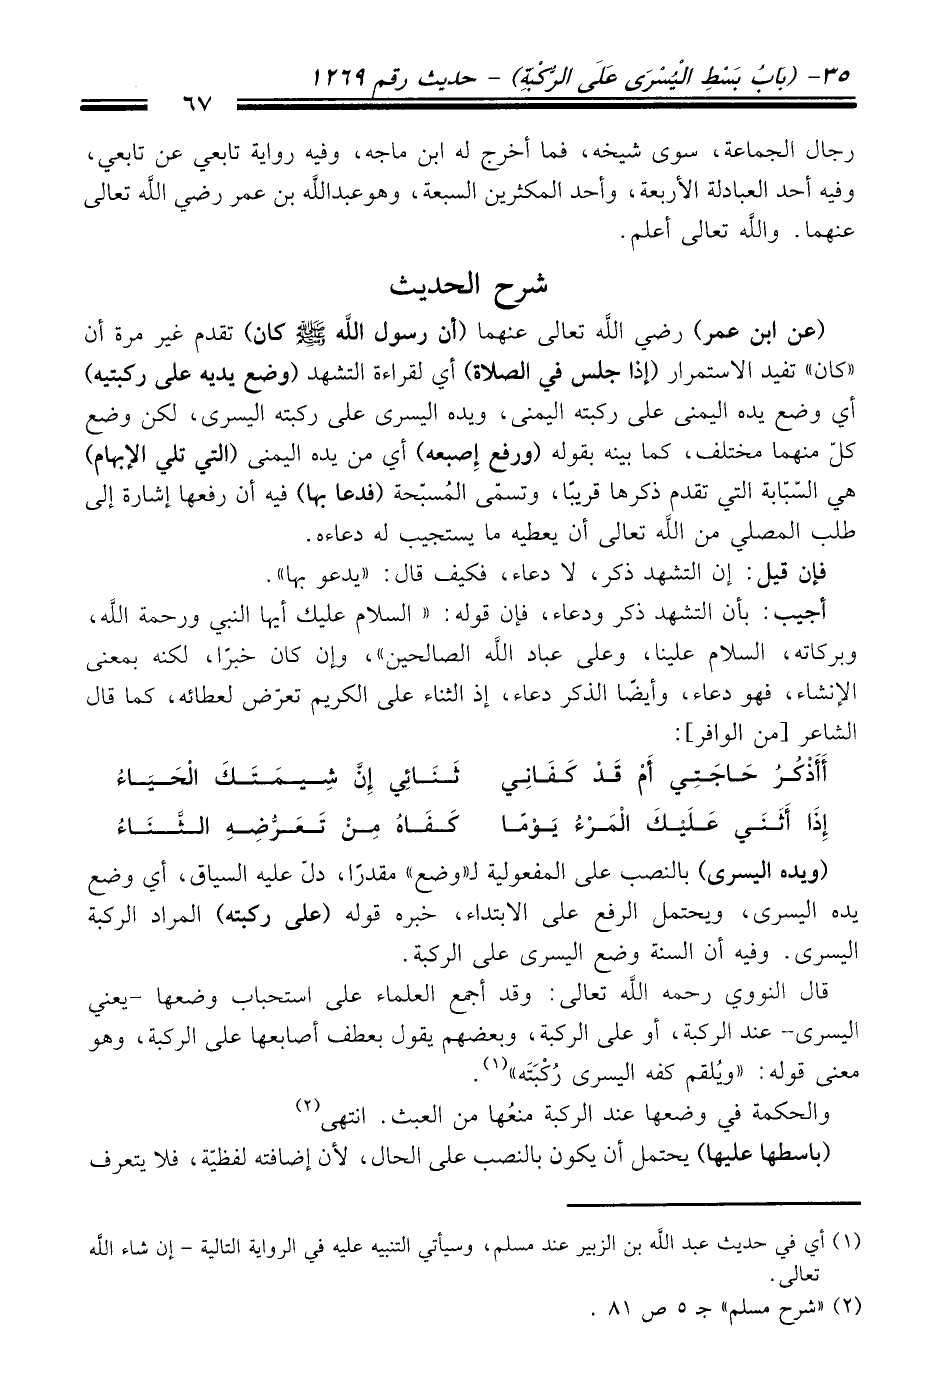 ٣٥- (بَابُ بَسْطِ الْيُسْرَى عَلَى الرُّكْبَةِ) - حديث رقم ١٢٦٩
٦٧
رجال الجماعة، سوى شيخه، فما أخرج له ابن ماجه، وفيه رواية تابعي عن تابعي،
وفيه أحد العبادلة الأربعة، وأحد المكثرين السبعة، وهوعبداللَّه بن عمر رضي اللَّه تعالى
عنهما. واللَّه تعالى أعلم.
شرح الحديث
(عن ابن عمر) رضي اللَّه تعالى عنهما (أن رسول اللَّه ﷺ كان) تقدم غير مرة أن
«كان» تفيد الاستمرار (إذا جلس في الصلاة) أي لقراءة التشهد (وضع يديه على ركبتيه)
أي وضع يده اليمنى على ركبته اليمنى، ويده اليسرى على ركبته اليسرى، لكن وضع
كلّ منهما مختلف، كما بينه بقوله (ورفع إصبعه) أي من يده اليمنى (التي تلي الإبهام)
هي السّبّابة التي تقدم ذكرها قريبًا، وتسمّى المُسبّحة (فدعا بها) فيه أن رفعها إشارة إلى
طلب المصلي من اللَّه تعالى أن يعطيه ما يستجيب له دعاءه.
فإن قيل: إن التشهد ذكر، لا دعاء، فكيف قال: «يدعو بها».
أجيب: بأن التشهد ذكر ودعاء، فإن قوله: « السلام عليك أيها النبي ورحمة اللَّه،
وبركاته، السلام علينا، وعلى عباد اللَّه الصالحين»، وإن كان خبرًا، لكنه بمعنى
الإنشاء، فهو دعاء، وأيضًا الذكر دعاء، إذ الثناء على الكريم تعرّض لعطائه، كما قال
الشاعر [من الوافر]:
أَأَذْكُرُ حَاجَتِي أَمْ قَدْ كَفَانِي ثَنَائِي إِنَّ شِيمَتَكَ الْحَيَاءُ
إِذَا أَثْنَى عَلَيْكَ الْمَرْءُ يَوْمًا كَفَاهُ مِنْ تَعَرُّضِهِ الثَّنَاءُ
(ويده اليسرى) بالنصب على المفعولية لـ«وضع» مقدرًا، دلّ عليه السياق، أي وضع
يده اليسرى، ويحتمل الرفع على الابتداء، خبره قوله (على ركبته) المراد الركبة
اليسرى. وفيه أن السنة وضع اليسرى على الركبة.
قال النووي رحمه اللَّه تعالى: وقد أجمع العلماء على استحباب وضعها -يعني
اليسرى- عند الركبة، أو على الركبة، وبعضهم يقول بعطف أصابعها على الركبة، وهو
معنى قوله: «ويُلقم كفه اليسرى رُكْبَتَه»(١).
والحكمة في وضعها عند الركبة منعُها من العبث. انتهى(٢)
(باسطها عليها) يحتمل أن يكون بالنصب على الحال، لأن إضافته لفظيّة، فلا يتعرف
(١) أي في حديث عبد اللَّه بن الزبير عند مسلم، وسيأتي التنبيه عليه في الرواية التالية - إن شاء اللَّه
تعالى.
(٢) «شرح مسلم» جـ ٥ ص ٨١ .